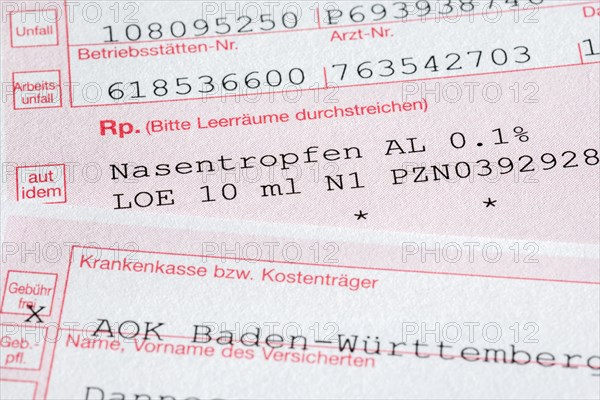 108095250
Unfall
Betriebsstätten-Nr.
Arzt-Nr.
618536600
763542703
Arbeits-
unfall
Rp. (Bitte Leerräume durchstreichen)
aut
idem
Nasentropfen AL 0.1%
LOE 10 ml N1 PZN0392928
* *
Krankenkasse bzw. Kostenträger
Gebühr
frei
X
AOK Baden-Württemberg
Geb.-
pfl.
Name, Vorname des Versicherten